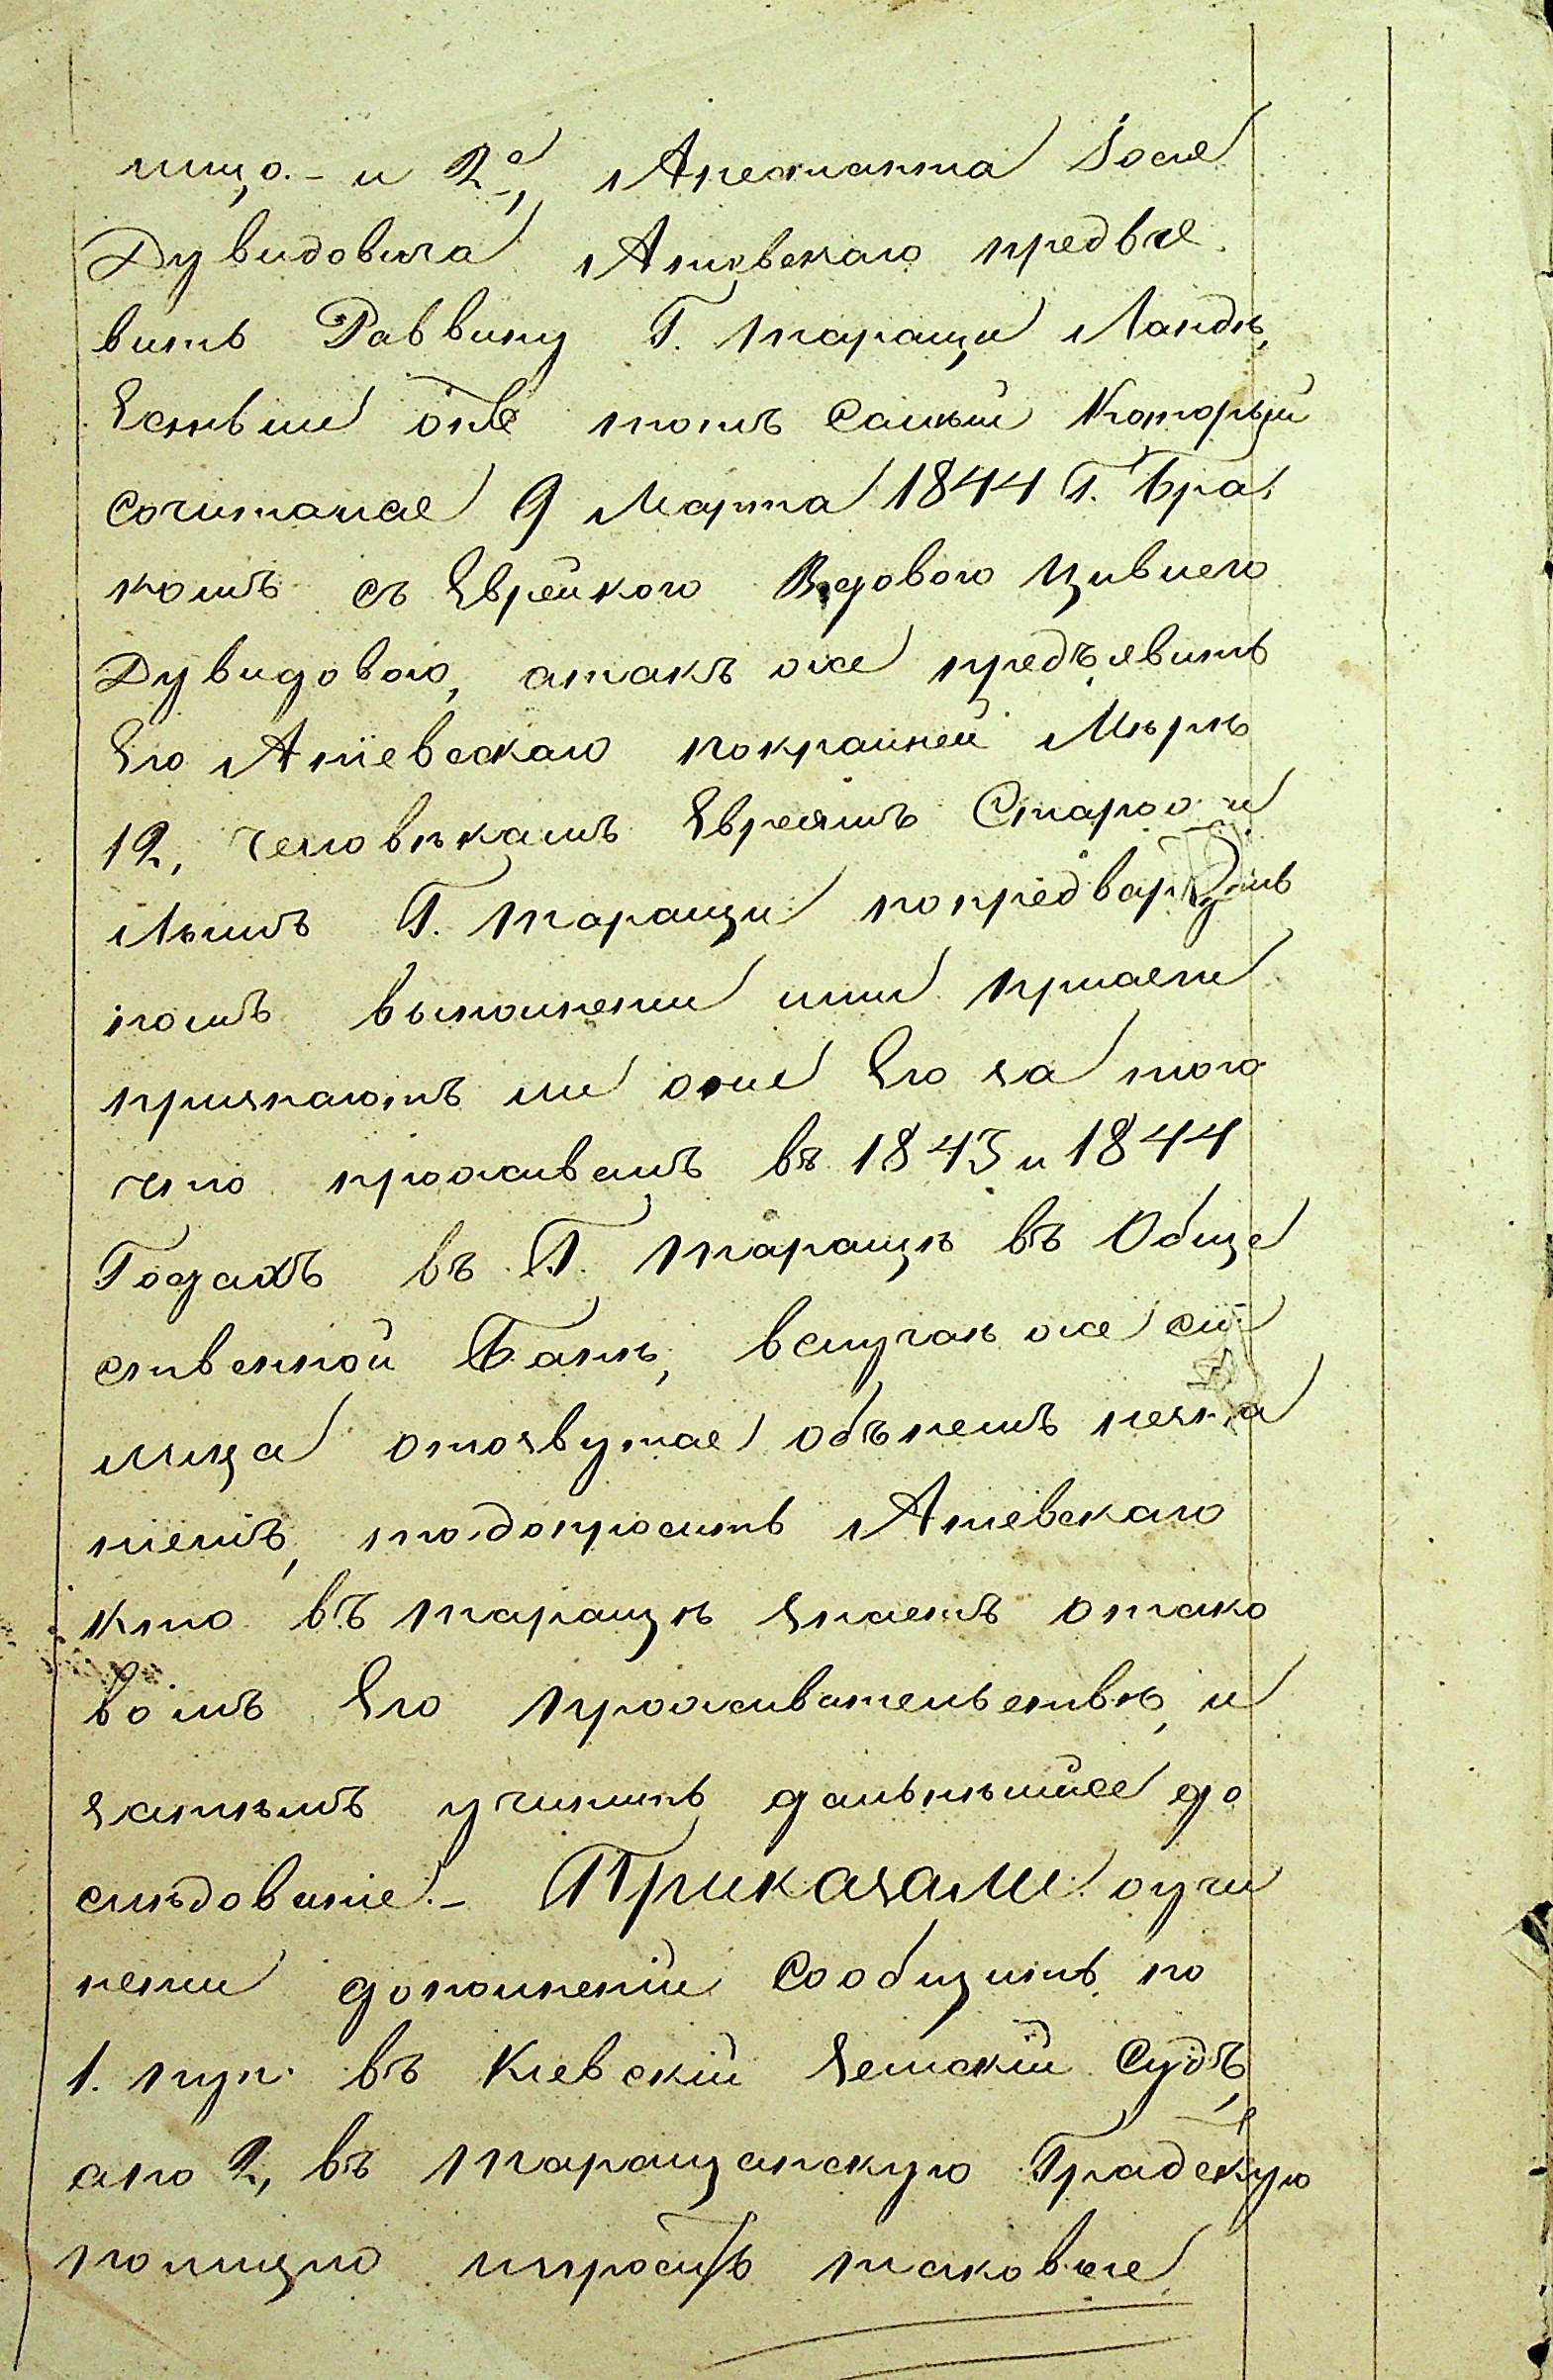 лица.- и 2е, Арестанта Іося
Дувидовича Апевскаго предъя
вить Раввину Г. Таращи Ландѣ,
Естьли онъ тотъ самый Который
сочитался 9 Марта 1844 Г. Бра
комъ съ Еврейкою Вдовою Цивнею
Дувидовою, атакъ же предъявить
Его Апіевскаго покрайней Мѣрѣ
12, человѣкамъ Евреямъ Старожи
лымъ Г. Таращи попредвар
номъ выполненіи ими присяги
признаютъ ли они Его за того
что проживалъ въ 1843 и 1844
Годахъ въ Г. Таращѣ въ Обще
ственной Банѣ, вслучаѣ же сіи
лица отозвутся обънемъ незна
ніемъ, то допросить Апіевскаго
кто въ Таращѣ знаетъ отако
вомъ Его проживательствѣ, и
затѣмъ учинить дальнѣйшее до
слѣдованіе.- Приказали: оучи
неніи дополненіи Сообщить по
1. пун. въ Кіевскій Земскій Судъ,
апо 2, въ Таращанскую Градскую
полицію ипросить таковые